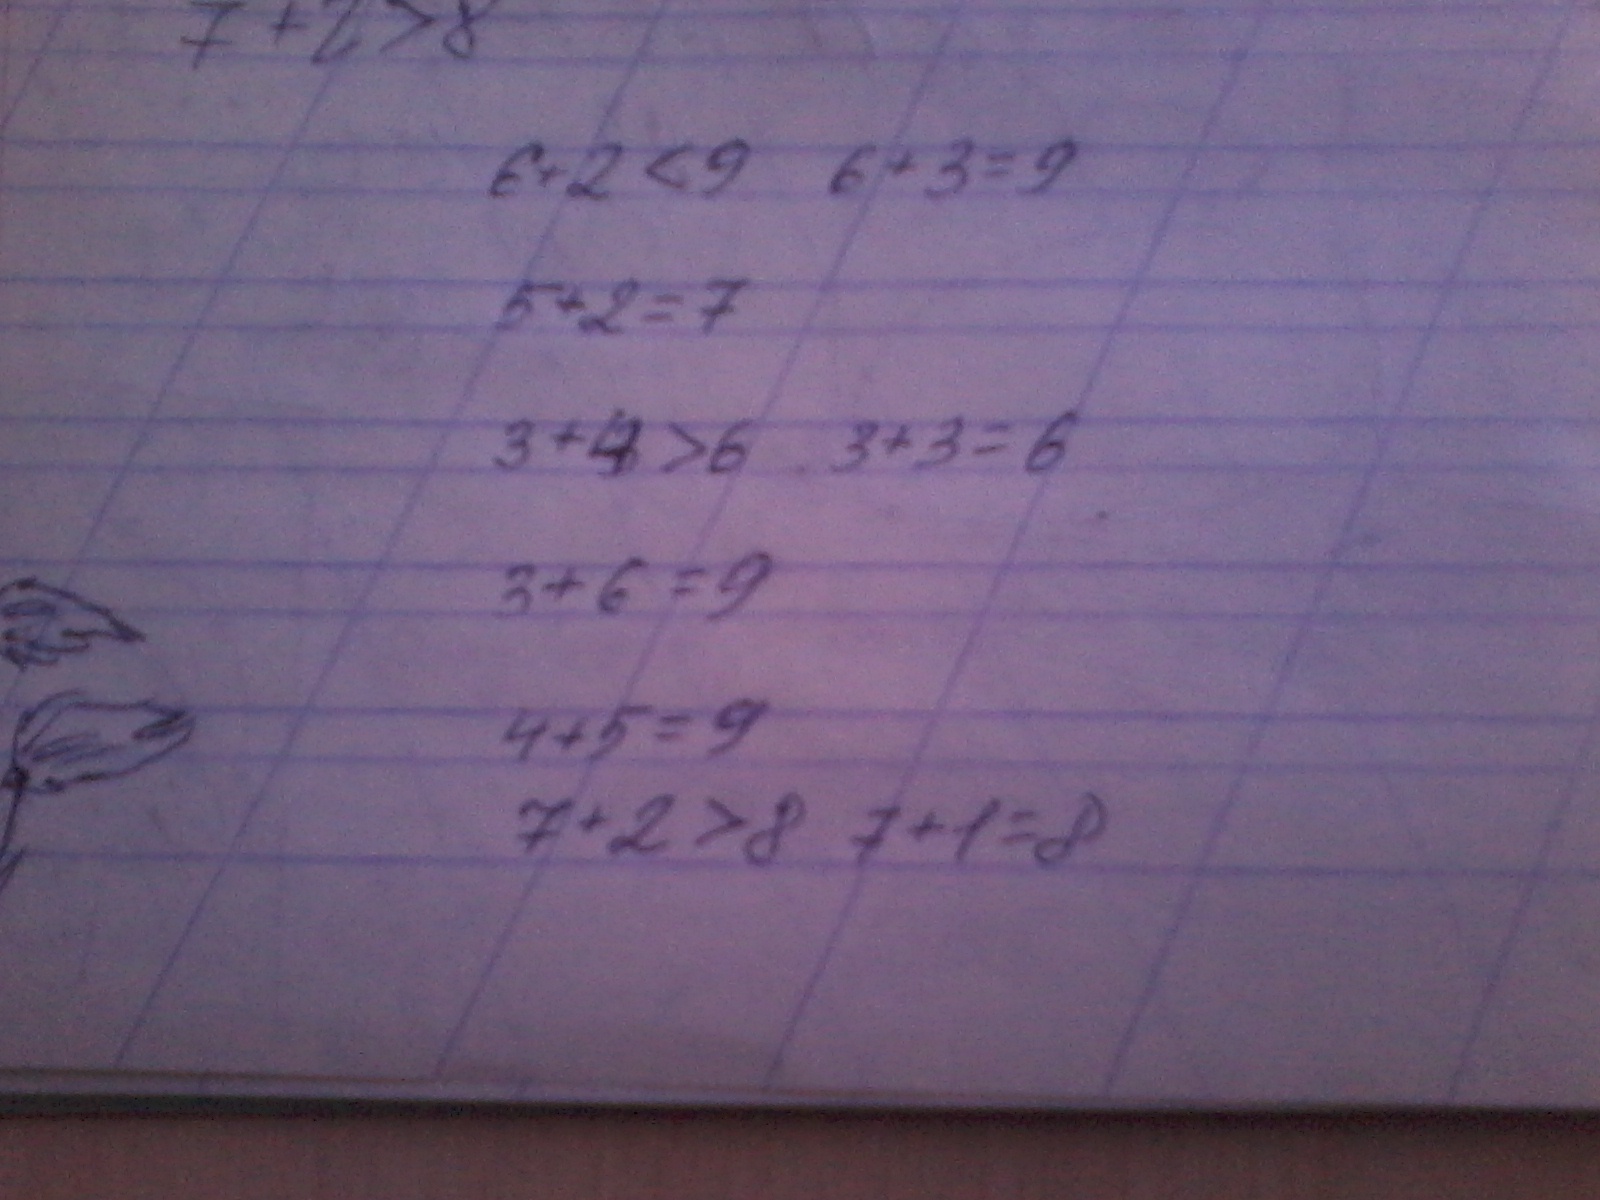 7+2>8
6+2<9 6+3=9
5+2=7
3+4>6 3+3=6
3+6=9
4+5=9
7+2>8 7+1=8